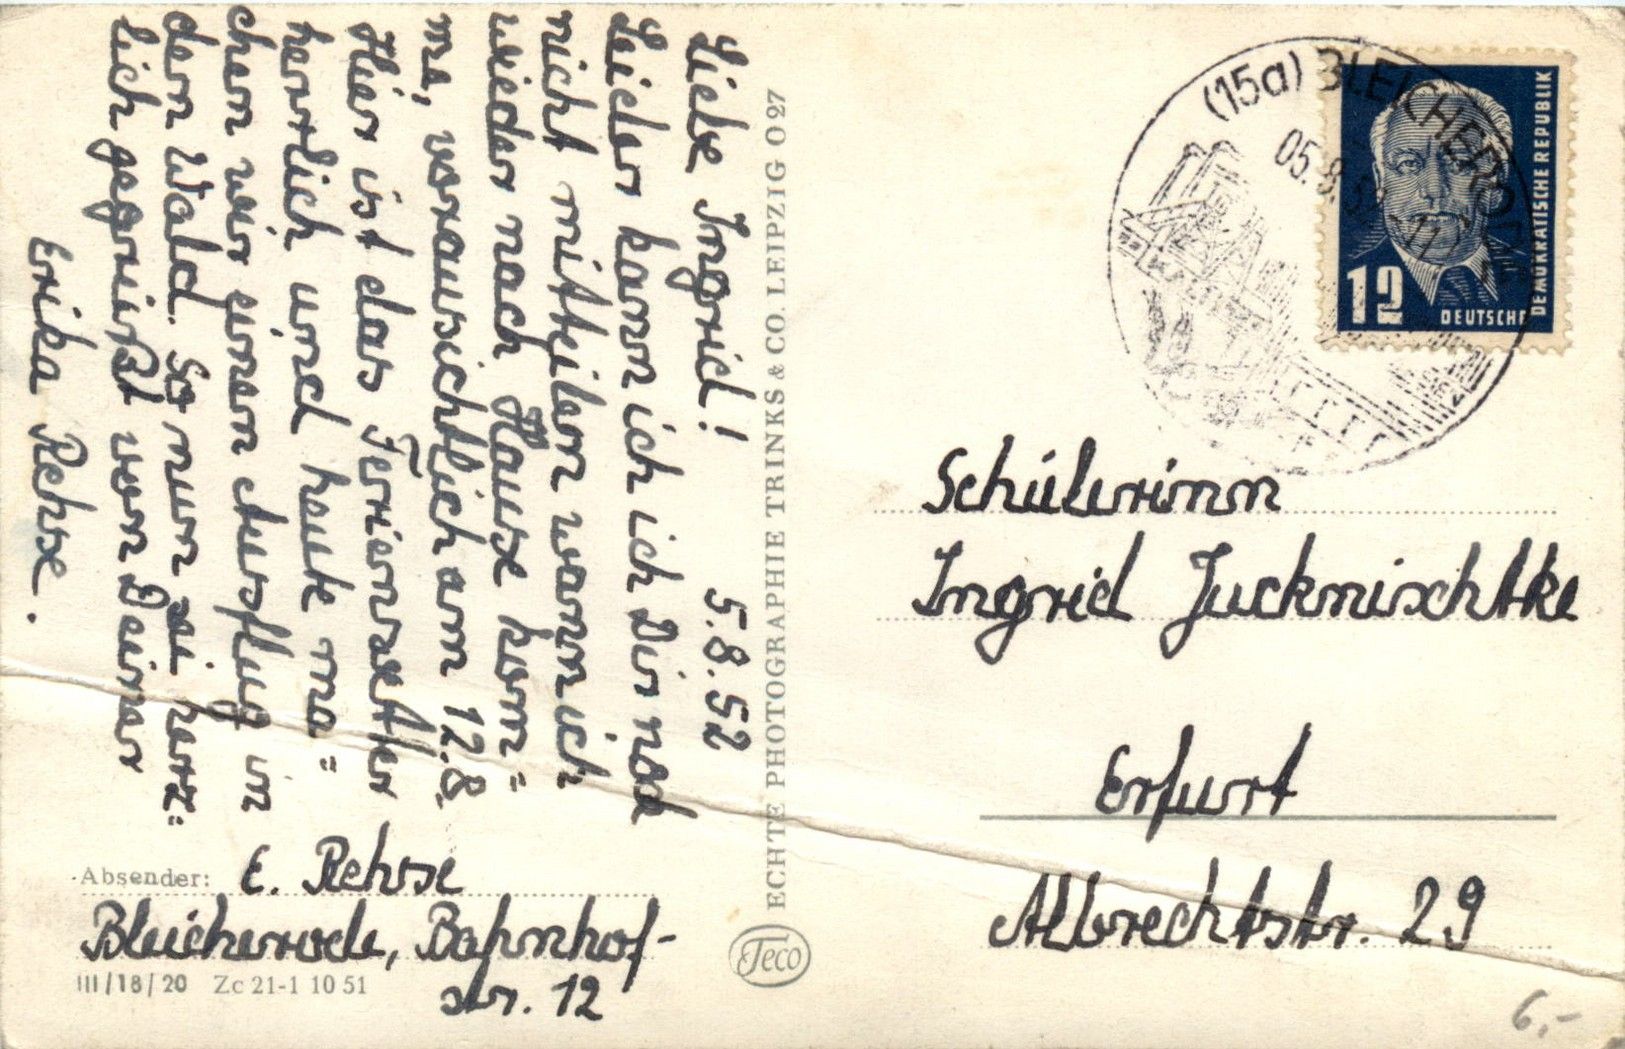 Liebe Ingrid! 5.8.52
Leider kann ich Dir noch
nicht mitteilen wann ich
wieder nach Hause kom=
me, voraussichtlich am 12.8.
Hier ist das Ferienwetter
herrlich und heute ma=
chen wir einen Ausflug in
den Wald. So nun sei herz=
lich gegrüßt von Deiner
Erika Rehse.
Absender: E. Rehse
Bleicherode, Bahnhof-
str. 12
III/18/20 Zc 21-1 10 51
ECHTE PHOTOGRAPHIE TRINKS & CO. LEIPZIG O 27
Teco
(15a) BLEICHERODE
05.8.52-17
12
DEUTSCHE
DEMOKRATISCHE REPUBLIK
Schülerinn
Ingrid Jucknischtke
Erfurt
Albrechtstr. 29
6,-